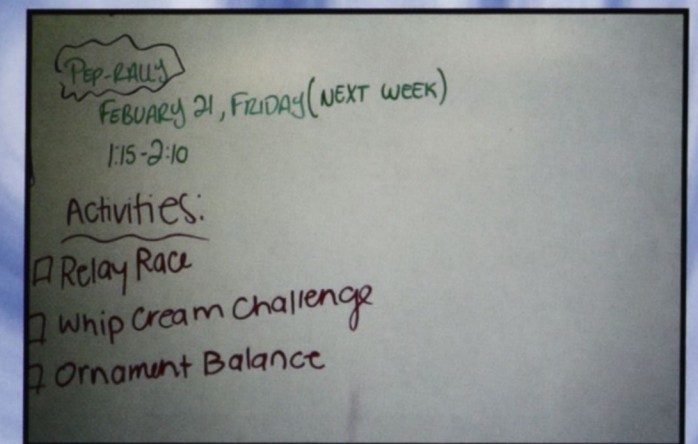 PEP-RALLY
FEBUARY 21, FRIDAY (NEXT WEEK)
1:15-2:10
Activities:
Relay Race
Whip Cream Challenge
Ornament Balance